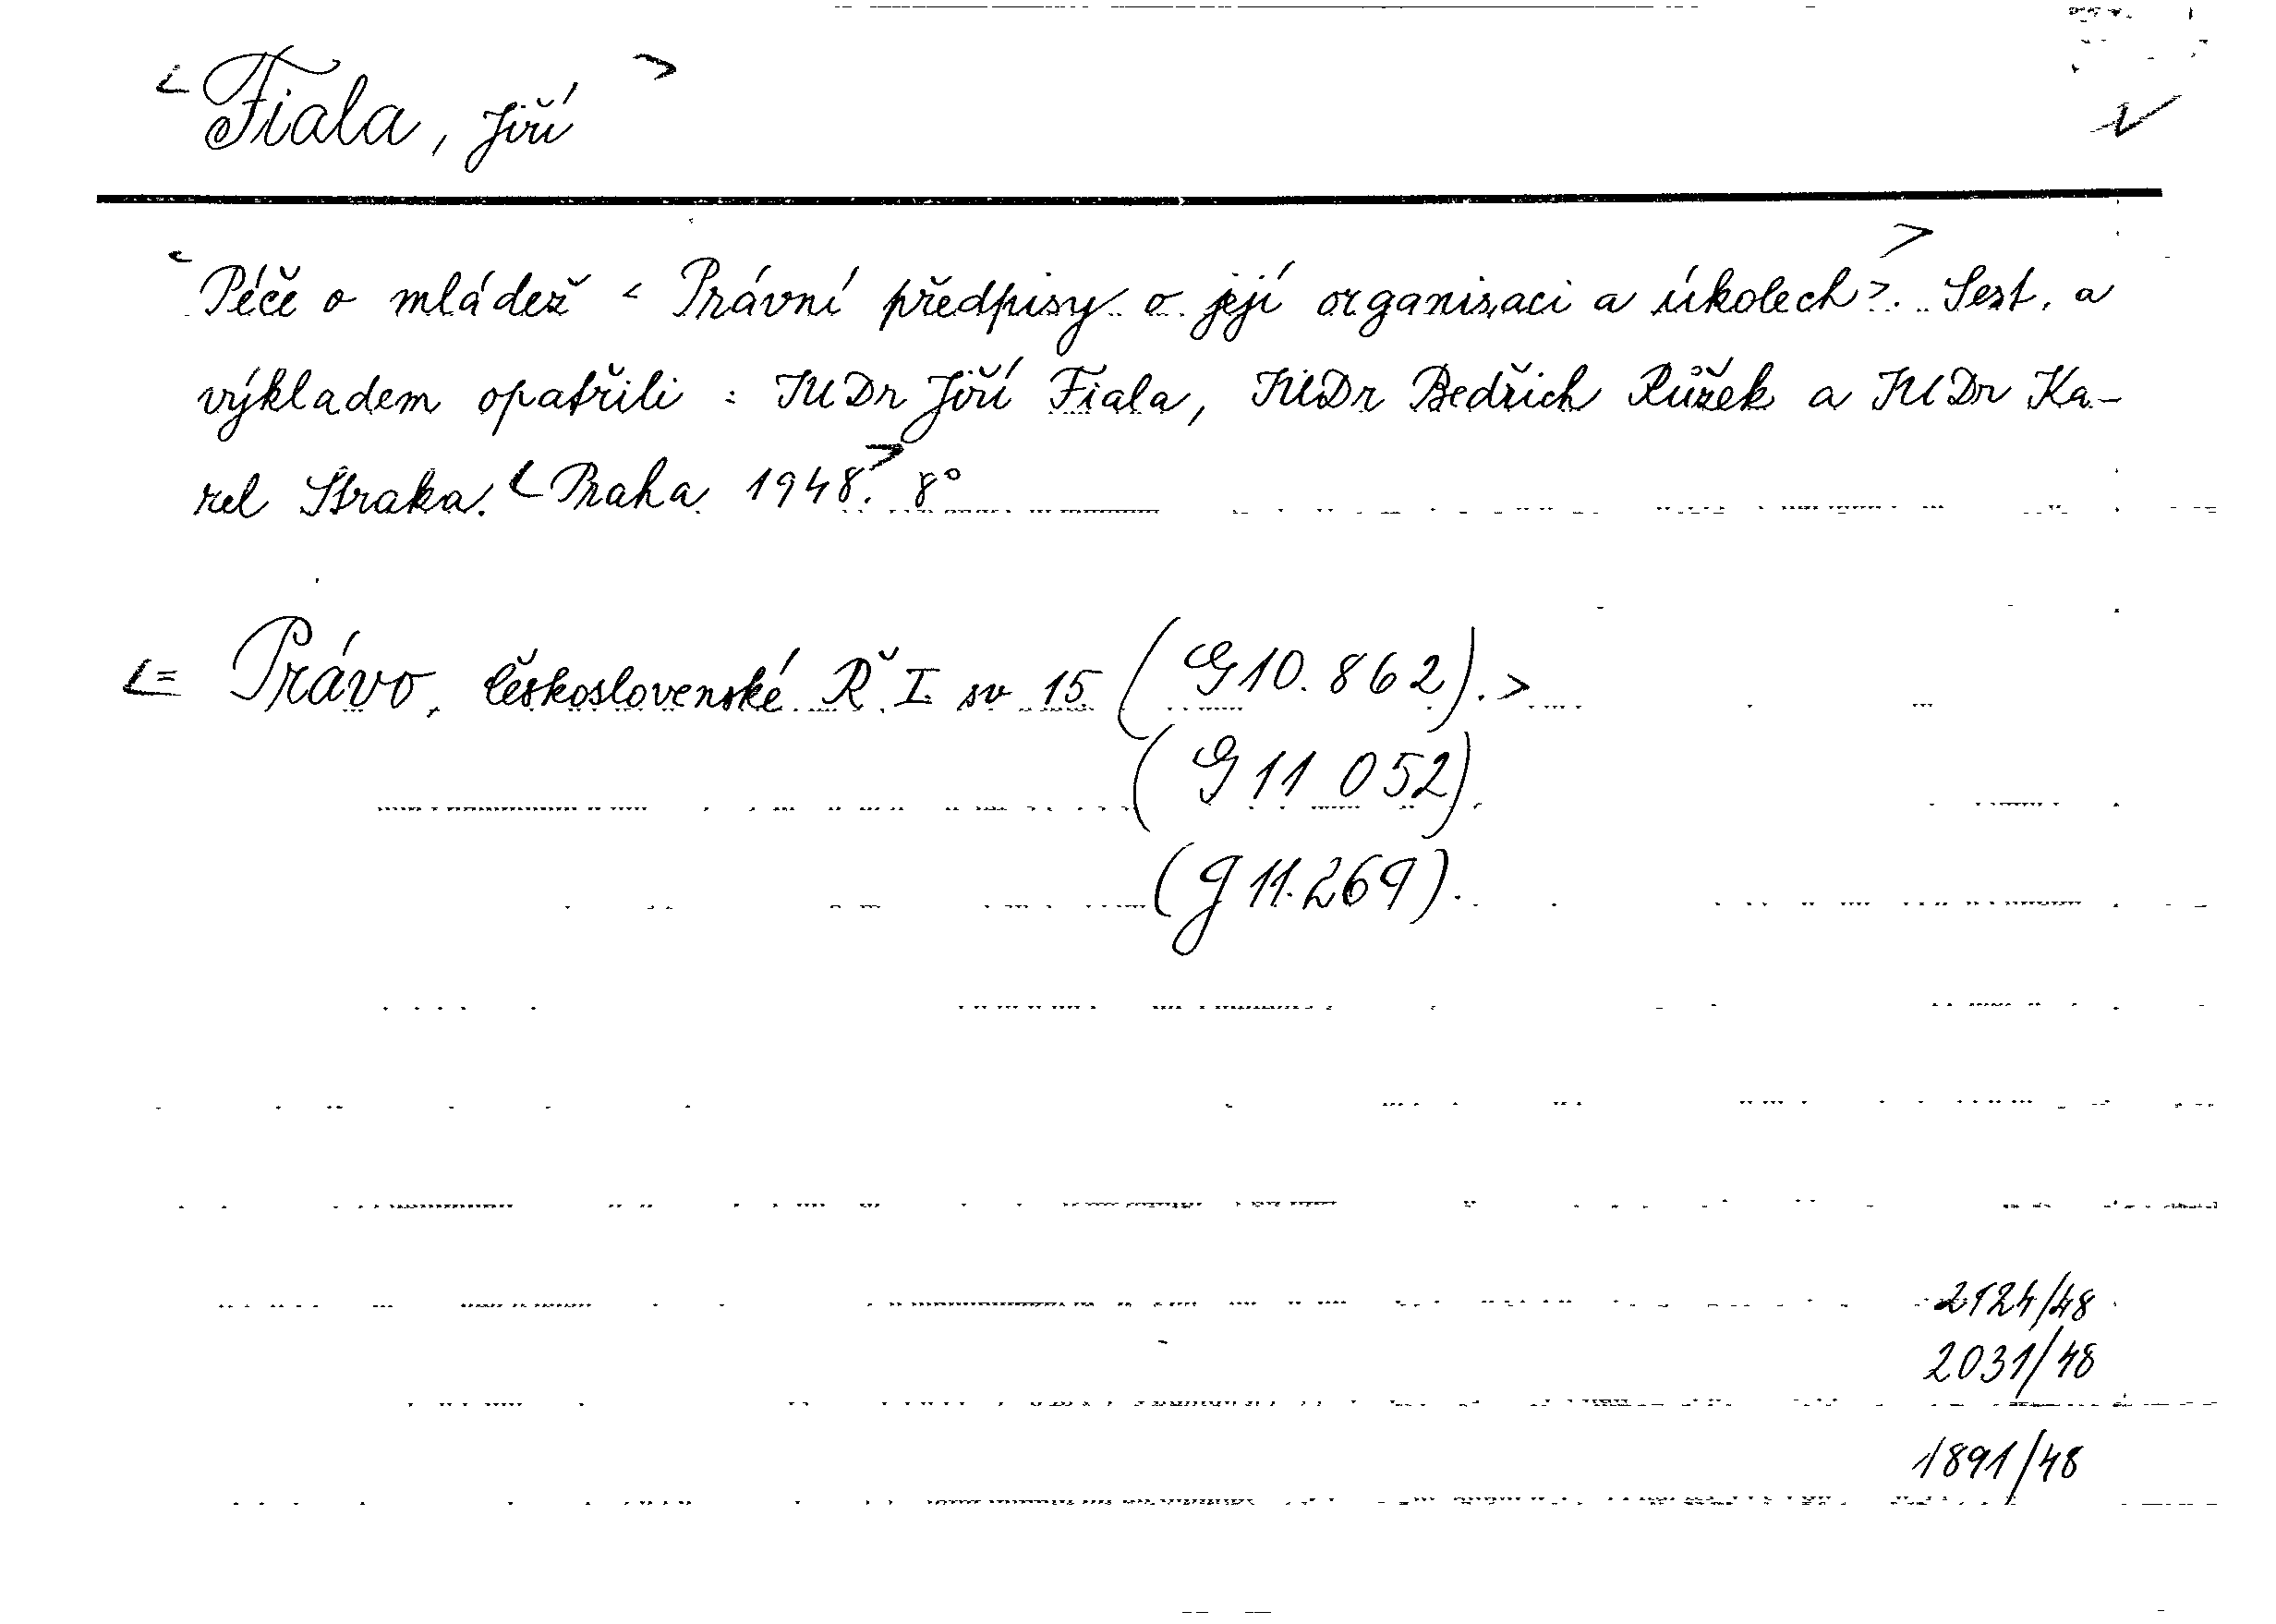 < Fiala, Jiří >
< Péče o mládež < Právní předpisy o její organisaci a úkolech >. > Sest. a
výkladem opatřili : JUDr Jiří Fiala, JUDr Bedřich Růžek a JUDr Ka-
rel Straka. < Praha 1948. > 8°
<= Právo, československé. Ř. I. sv 15 (G 10.862). >
(G 11 052)
(G 11.269).
2124/48
2031/48
1891/48